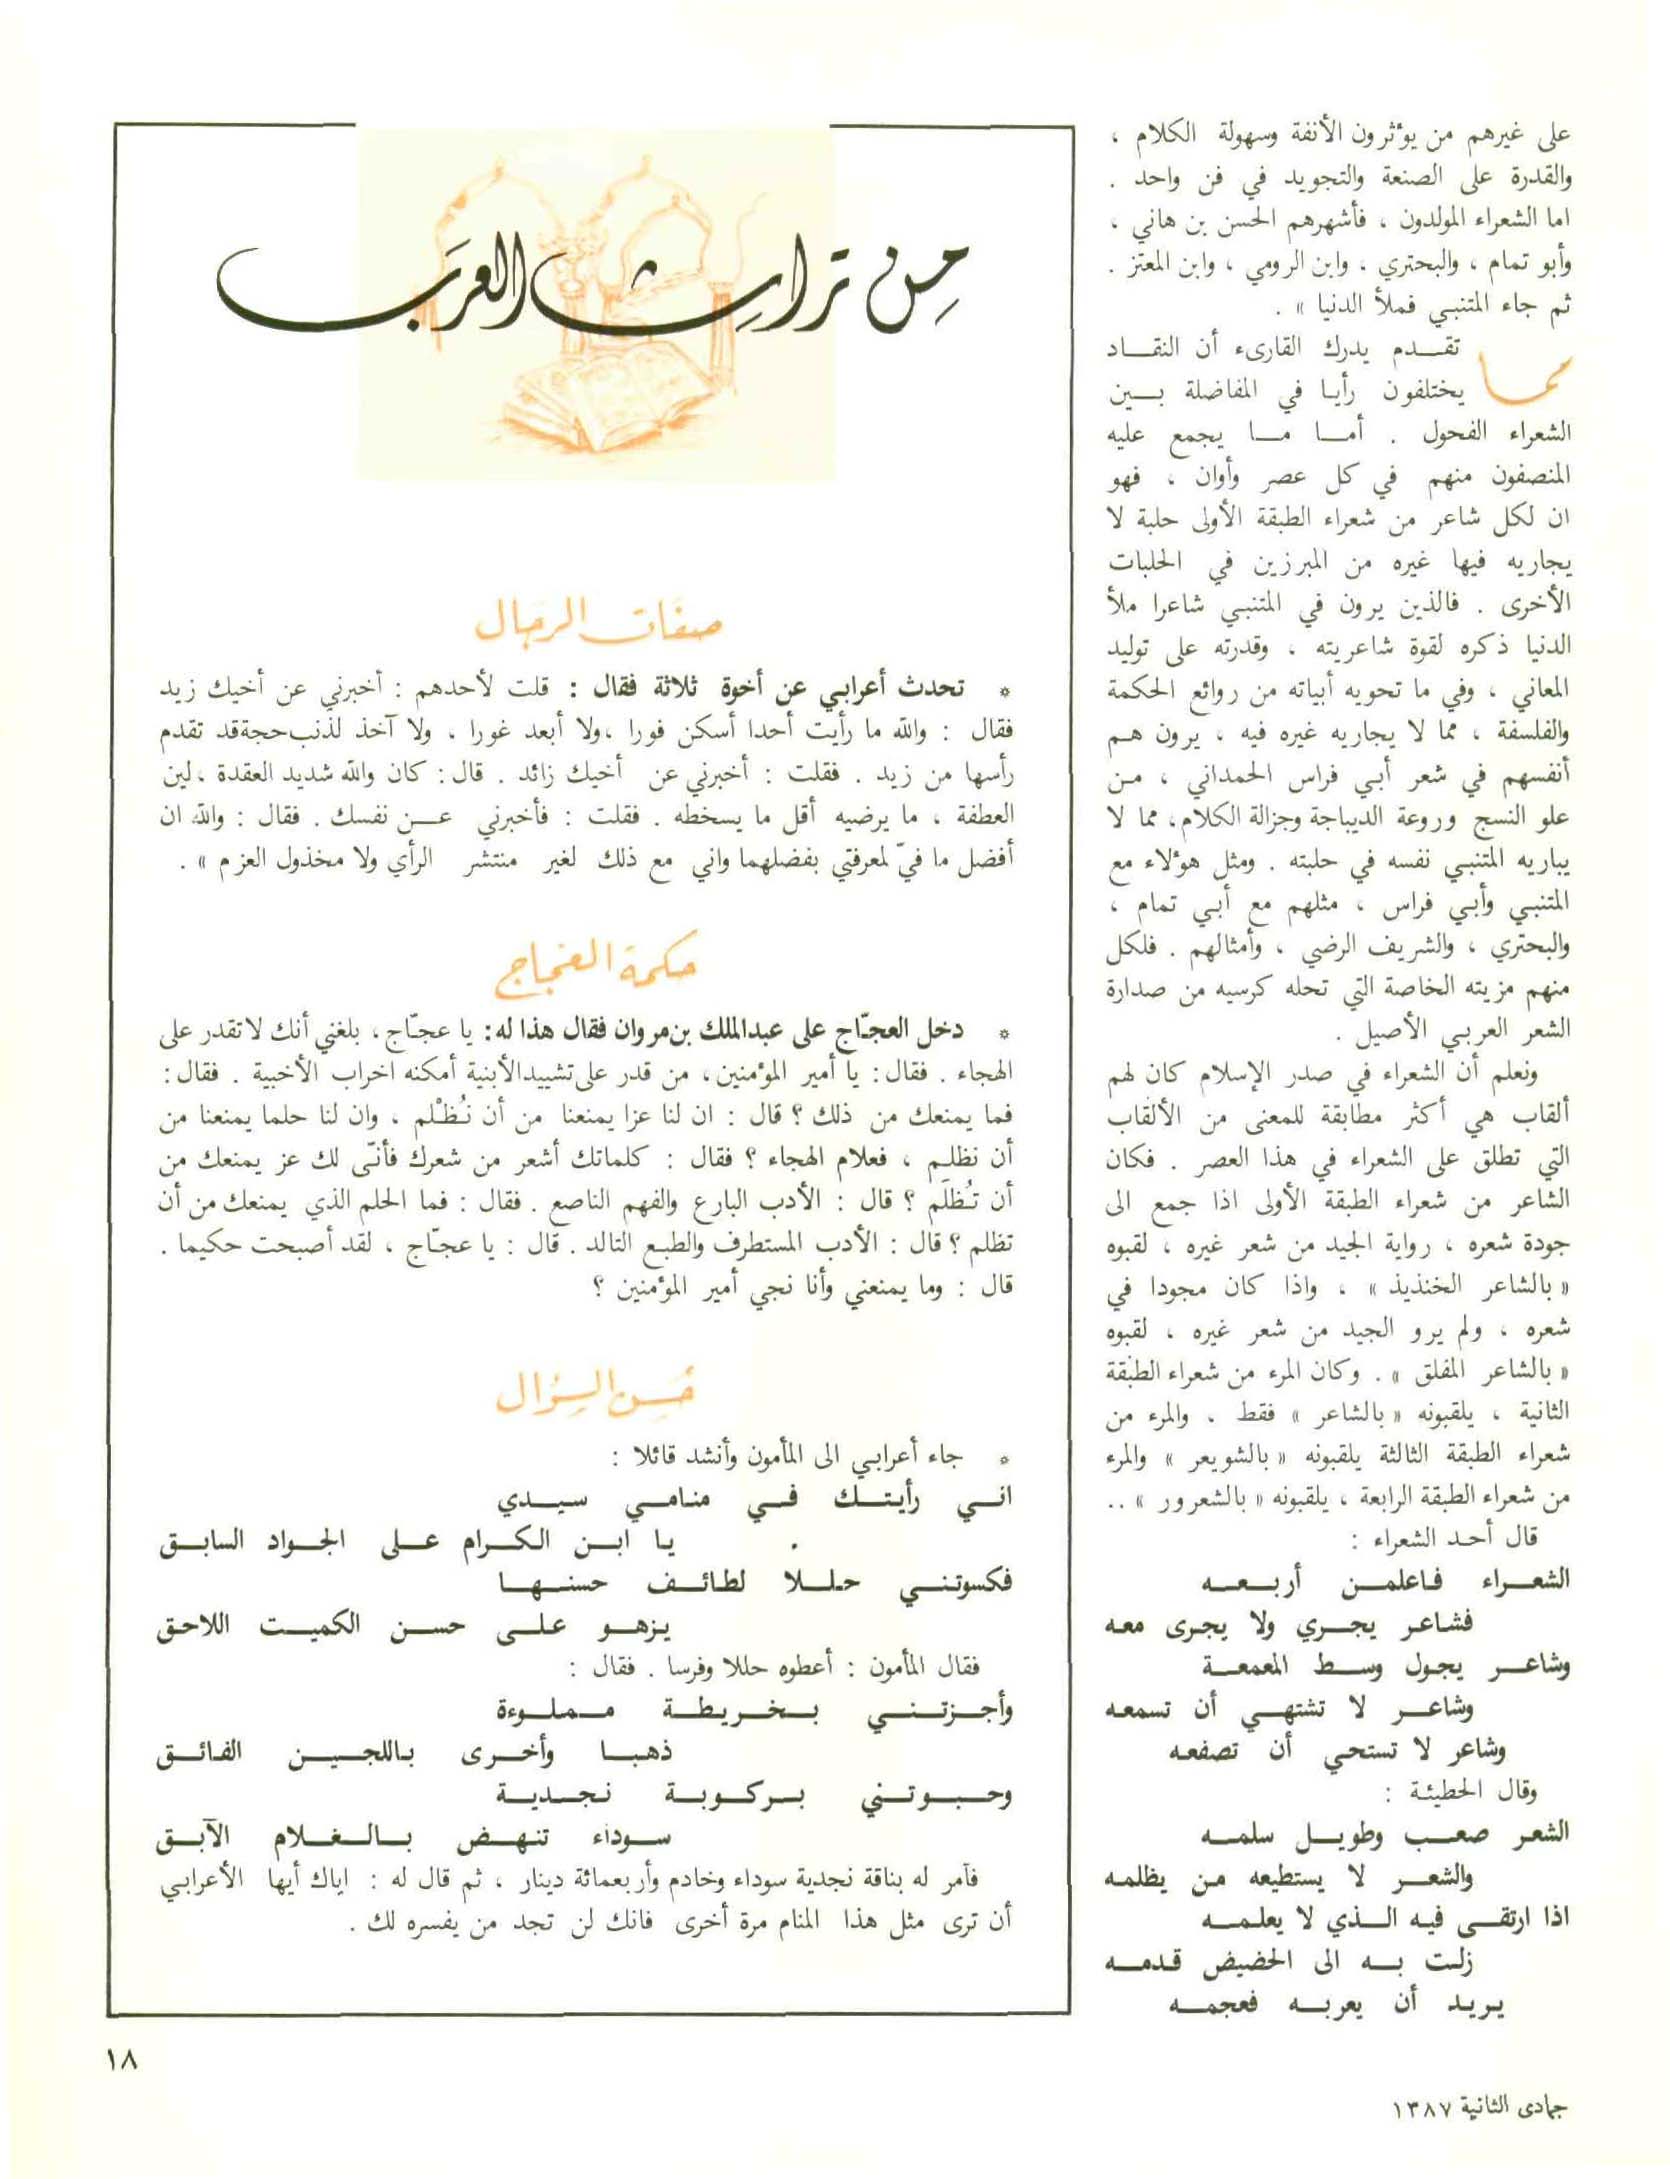 على غيرهم من يؤثرون الأنفة وسهولة الكلام ،
والقدرة على الصنعة والتجويد في فن واحد .
اما الشعراء المولدون ، فأشهرهم الحسن بن هاني ،
وأبو تمام ، والبحتري ، وابن الرومي ، وابن المعتز .
ثم جاء المتنبي فملأ الدنيا » .
مما تقـــدم يدرك القارىء أن النقـــاد
يختلفون رأيـا في المفاضلة بـــين
الشعراء الفحول . أمـــا مـــا يجمع عليه
المنصفون منهم في كل عصر وأوان ، فهو
ان لكل شاعر من شعراء الطبقة الأولى حلبة لا
يجاريه فيها غيره من المبرزين في الحلبات
الأخرى . فالذين يرون في المتنبي شاعرا ملأ
الدنيا ذكره لقوة شاعريته ، وقدرته على توليد
المعاني ، وفي ما تحويه أبياته من روائع الحكمة
والفلسفة ، مما لا يجاريه غيره فيه ، يرون هـم
أنفسهم في شعر أبي فراس الحمداني ، مـن
علو النسج وروعة الديباجة وجزالة الكلام، مما لا
يباريه المتنبي نفسه في حلبته . ومثل هؤلاء مع
المتنبي وأبي فراس ، مثلهم مع أبي تمام ،
والبحتري ، والشريف الرضي ، وأمثالهم . فلكل
منهم مزيته الخاصة التي تحله كرسيه من صدارة
الشعر العربي الأصيل .
ونعلم أن الشعراء في صدر الإسلام كان لهم
ألقاب هي أكثر مطابقة للمعنى من الألقاب
التي تطلق على الشعراء في هذا العصر . فكان
الشاعر من شعراء الطبقة الأولى اذا جمع الى
جودة شعره ، رواية الجيد من شعر غيره ، لقبوه
« بالشاعر الخنذيذ » ، واذا كان مجودا في
شعره ، ولم يرو الجيد من شعر غيره ، لقبوه
« بالشاعر المفلق » . وكان المرء من شعراء الطبقة
الثانية ، يلقبونه « بالشاعر » فقط ، والمرء من
شعراء الطبقة الثالثة يلقبونه « بالشويعر » والمرء
من شعراء الطبقة الرابعة ، يلقبونه « بالشعرور » ..
قال أحـد الشعراء :
الشعـــراء فـاعلمـــن أربـــعـــه
فشـاعـر يجـــري ولا يجـرى معه
وشاعـــر يجـول وســـط المعمعـــة
وشاعـــر لا تشتهـــي أن تسمعه
وشاعر لا تستحي أن تصفعه
وقال الحطيئة :
الشعـر صعـــب وطويـــل سلمـــه
والشعـــر لا يستطيعه مـن يظلمه
اذا ارتقـــى فيـه الـــذي لا يعلـمـــه
زلـت بـــه الى الحضيض قـدمـــه
يـريـد أن يعربـــه فعجمـــه
من تراث العرب
صفات الرجال
* تحدث أعرابي عن أخوة ثلاثة فقال : قلت لأحدهم : أخبرني عن أخيك زيد
فقال : والله ما رأيت أحدا أسكن فورا ، ولا أبعد غورا ، ولا آخذ لذنب حجة قد تقدم
رأسها من زيد . فقلت : أخبرني عن أخيك زائد . قال : كان والله شديد العقدة ، لين
العطفة ، ما يرضيه أقل ما يسخطه . فقلت : فأخبرني عـــن نفسك . فقال : والله ان
أفضل ما فيّ لمعرفتي بفضلهما واني مع ذلك لغير منتشر الرأي ولا مخذول العزم » .
حكمة العجاج
* دخل العجّاج على عبدالملك بن مروان فقال هذا له : يا عجّاج ، بلغني أنك لا تقدر على
الهجاء . فقال : يا أمير المؤمنين، من قدر على تشييد الأبنية أمكنه اخراب الأخبية . فقال :
فما يمنعك من ذلك ؟ قال : ان لنا عزا يمنعنا من أن نُظْلم ، وان لنا حلما يمنعنا من
أن نظلـم ، فعلام الهجاء ؟ فقال : كلماتك أشعر من شعرك فأنّى لك عز يمنعك من
أن تُظلَم ؟ قال : الأدب البارع والفهم الناصع . فقال : فما الحلم الذي يمنعك من أن
تظلم ؟ قال : الأدب المستطرف والطبـع التالد . قال : يا عجّاج ، لقد أصبحت حكيما .
قال : وما يمنعني وأنا نجي أمير المؤمنين ؟
حسن السؤال
* جاء أعرابي الى المأمون وأنشد قائلا :
انـــي رأيـتـــك فـــي منـامـــي سيـــدي
يـا ابـــن الكـــرام عـــلى الجـــواد السابـــق
فكسوتـنـــي حـلـــلا لطائـــف حسنـــهـــا
يـزهـــو علـــى حســـن الكميـــت اللاحـق
فقال المأمون : أعطوه حللا وفرسا . فقال :
وأجـــزتـــنـــي بـــخـــريطـــة مـــملـــوءة
ذهبـــا وأخـــرى بـاللجـــين الفـائـــق
وحـــبـــوتـــني بـــركـــوبـــة نـجـــديـــة
ســـوداء تنهـــض بـــالـــغـــلام الآبـــق
فأمر له بناقة نجدية سوداء وخادم وأربعمائة دينار ، ثم قال له : اياك أيها الأعرابي
أن ترى مثل هذا المنام مرة أخرى فانك لن تجد من يفسره لك .
١٨
جمادى الثانية ١٣٨٧